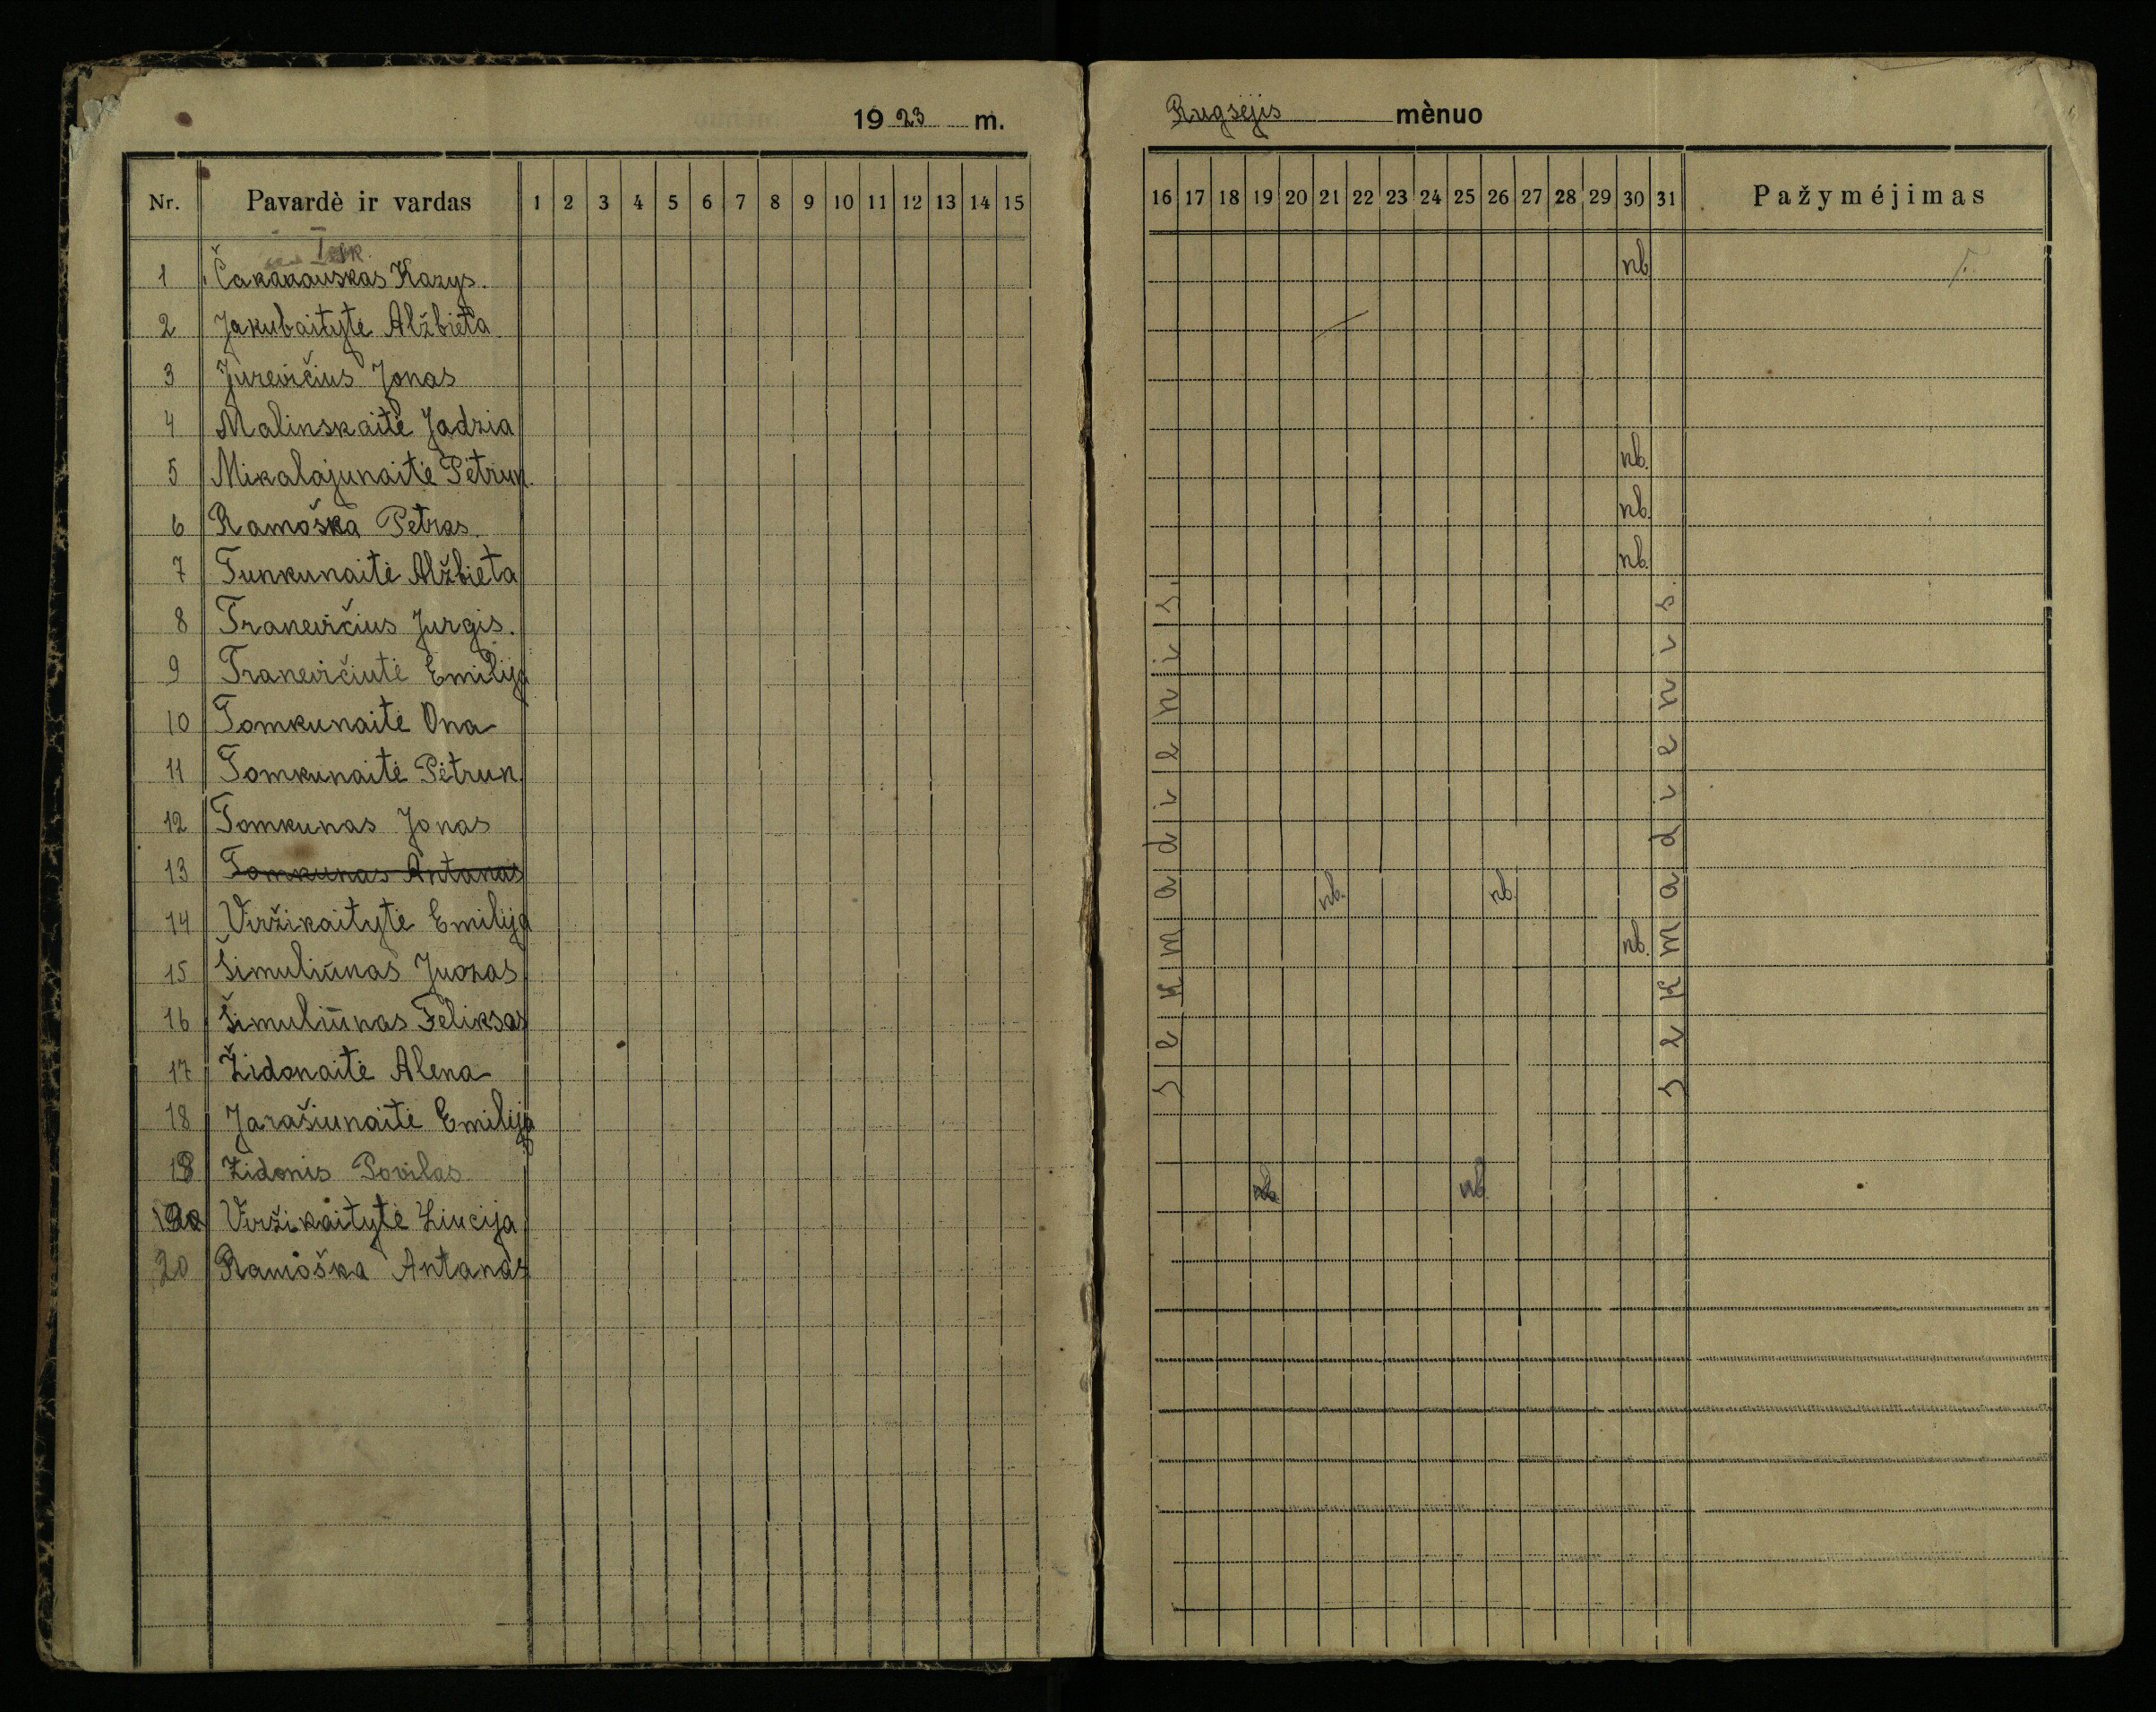 1923 m.
Rugsėjis mènuo
Nr. Pavardè ir vardas 1 2 3 4 5 6 7 8 9 10 11 12 13 14 15
16 17 18 19 20 21 22 23 24 25 26 27 28 29 30 31 Pažyméjimas
I sk.
1 Čakakauskas Kazys. nb
2 Jakubaitytė Alžbieta
3 Jurevičius Jonas
4 Malinskaitė Jadzia
5 Mikalajunaitė Pėtrun. nb.
6 Ramoška Petras. nb.
7 Tunkunaitė Alžbieta nb.
8 Tranevičius Jurgis.
9 Tranevičiutė Emilija
10 Tomkunaitė Ona
11 Tomkunaitė Pėtrun.
12 Tomkunas Jonas
13 Tomkunas Antanas
14 Viržikaitytė Emilija nb. nb.
15 Šimuliūnas Juozas nb.
16 Šimuliūnas Feliksas
17 Židonaitė Alena
18 Jarašiunaitė Emilija
18 Židonis Povilas
Viržikaitytė Liucija nb. nb
20 Ramoška Antanas
sekmadienis.
sekmadienis.